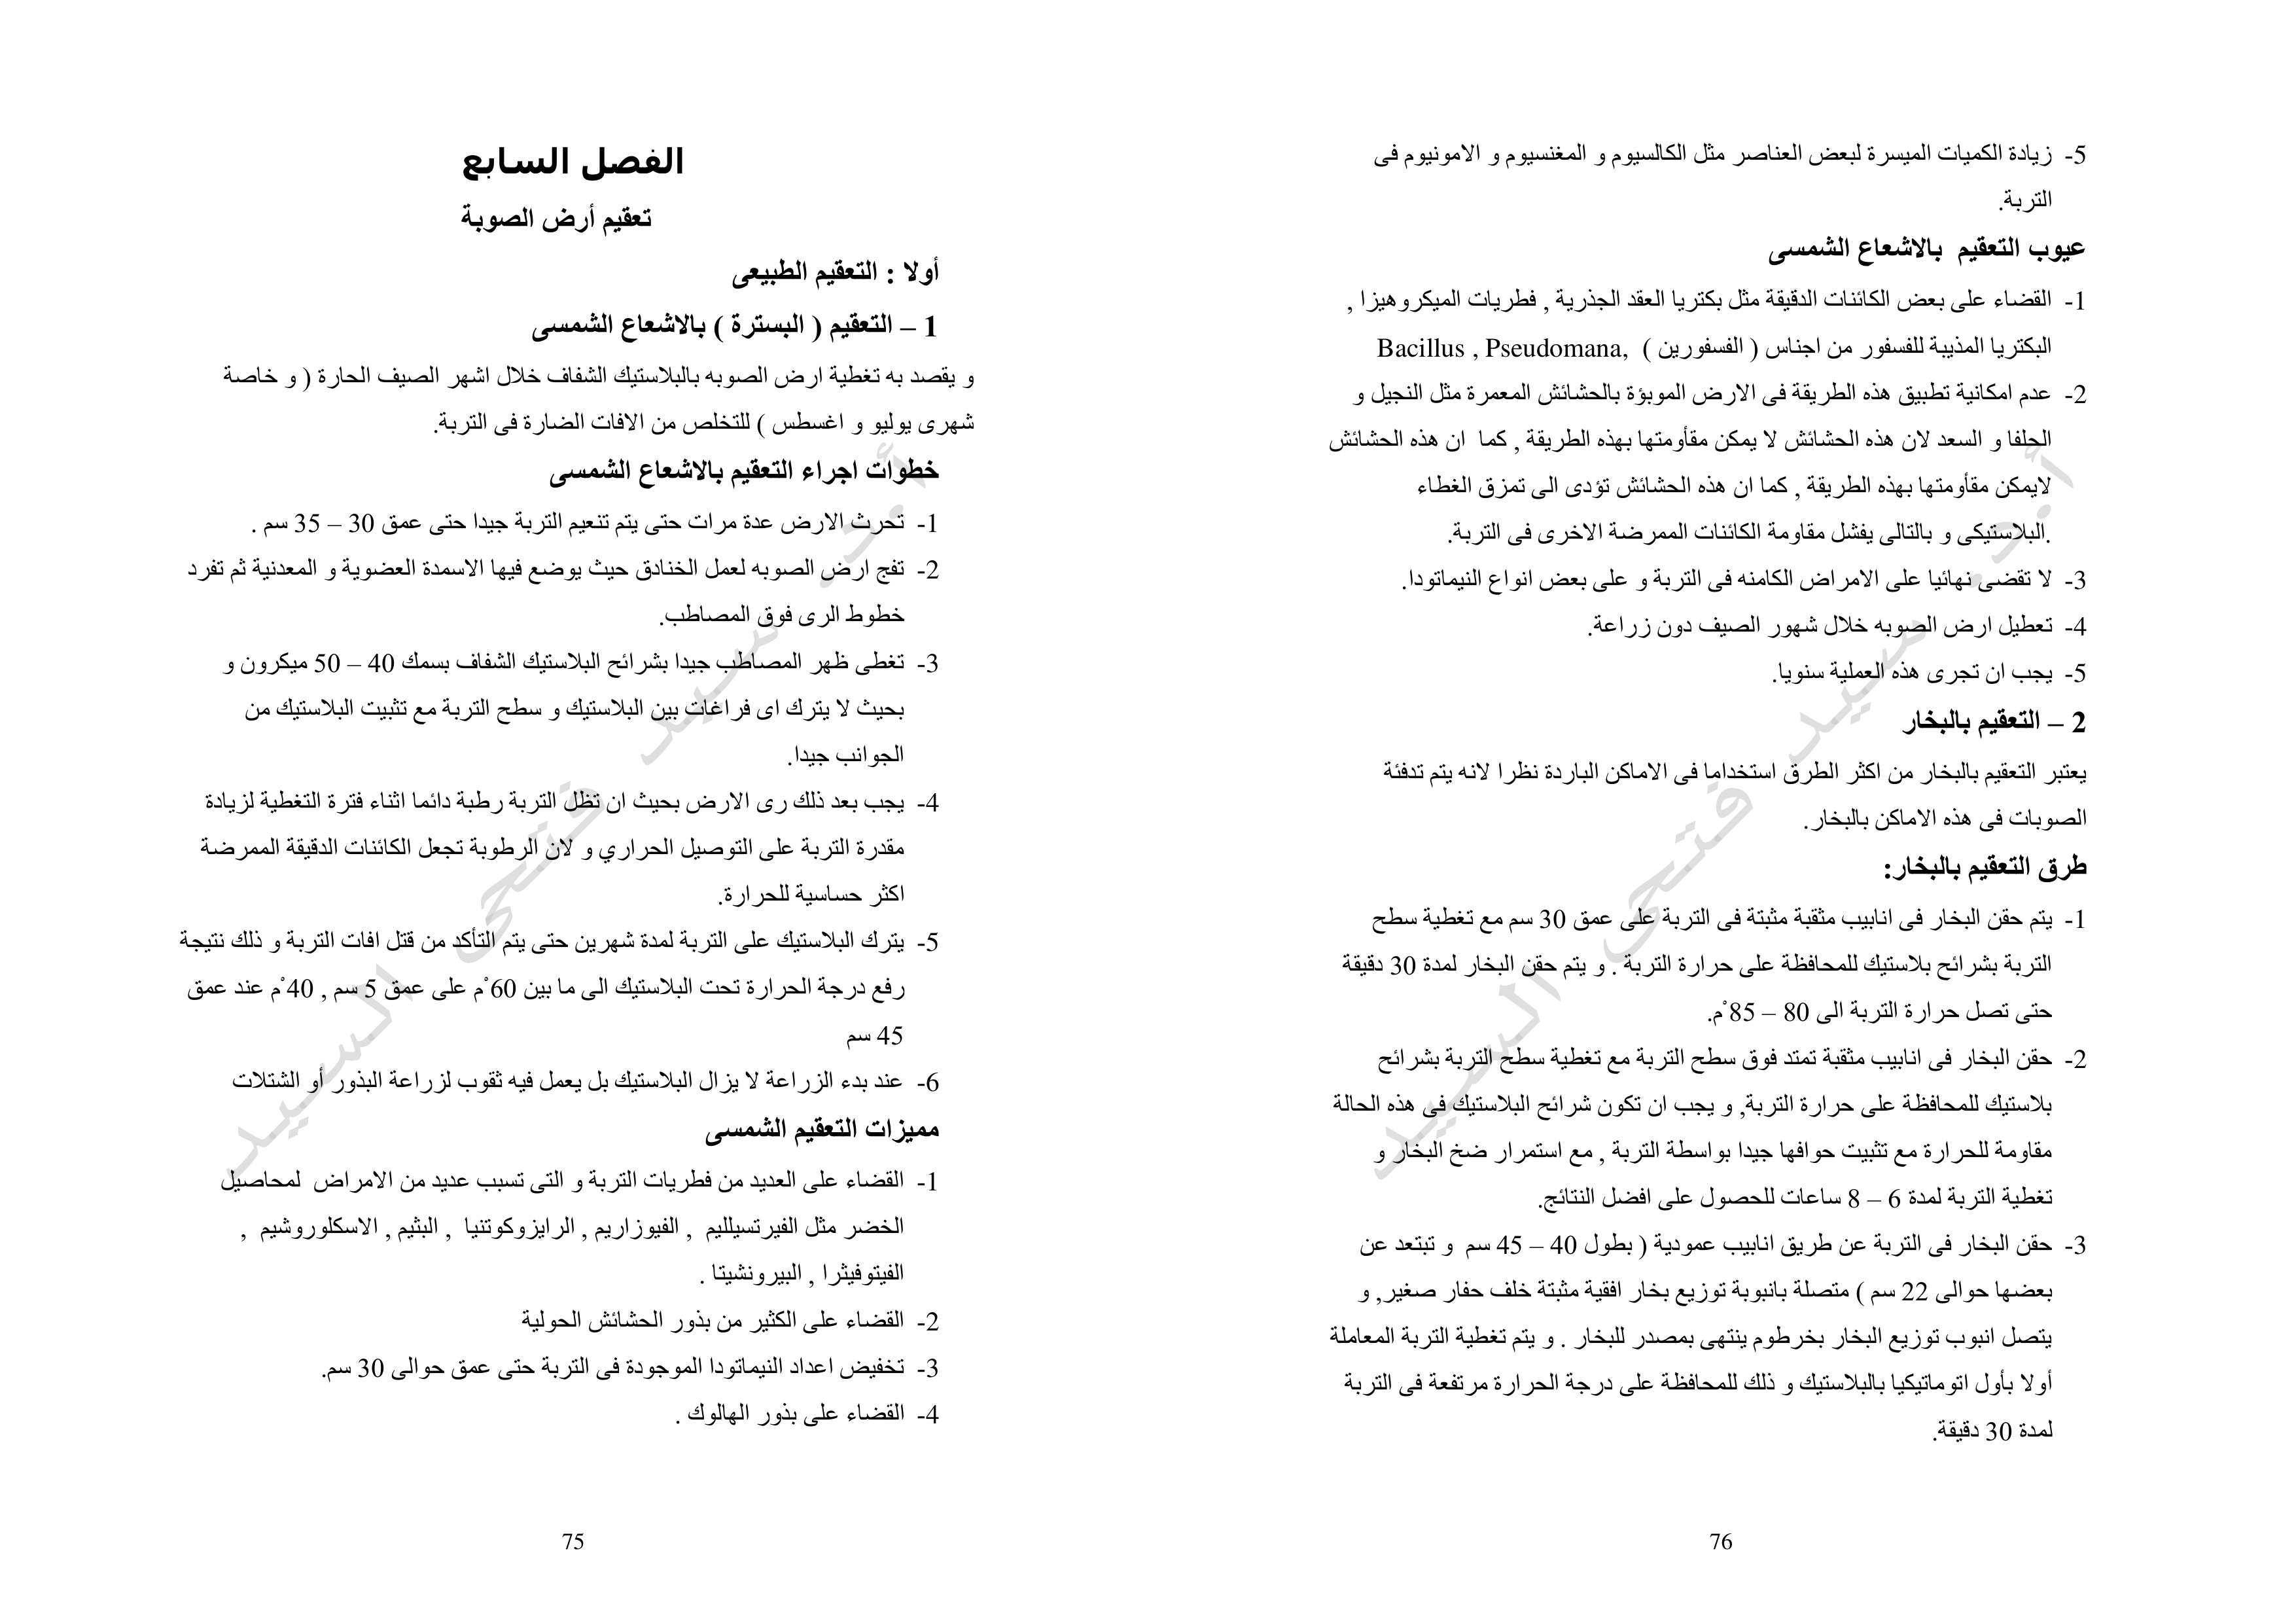 الفصل السابع
تعقيم أرض الصوبة
أولا : التعقيم الطبيعى
1 – التعقيم ( البسترة ) بالاشعاع الشمسى
و يقصد به تغطية ارض الصوبه بالبلاستيك الشفاف خلال اشهر الصيف الحارة ( و خاصة
شهرى يوليو و اغسطس ) للتخلص من الافات الضارة فى التربة.
خطوات اجراء التعقيم بالاشعاع الشمسى
1- تحرث الارض عدة مرات حتى يتم تنعيم التربة جيدا حتى عمق 30 – 35 سم .
2- تفج ارض الصوبه لعمل الخنادق حيث يوضع فيها الاسمدة العضوية و المعدنية ثم تفرد
خطوط الرى فوق المصاطب.
3- تغطى ظهر المصاطب جيدا بشرائح البلاستيك الشفاف بسمك 40 – 50 ميكرون و
بحيث لا يترك اى فراغات بين البلاستيك و سطح التربة مع تثبيت البلاستيك من
الجوانب جيدا.
4- يجب بعد ذلك رى الارض بحيث ان تظل التربة رطبة دائما اثناء فترة التغطية لزيادة
مقدرة التربة على التوصيل الحراري و لان الرطوبة تجعل الكائنات الدقيقة الممرضة
اكثر حساسية للحرارة.
5- يترك البلاستيك على التربة لمدة شهرين حتى يتم التأكد من قتل افات التربة و ذلك نتيجة
رفع درجة الحرارة تحت البلاستيك الى ما بين 60ْم على عمق 5 سم , 40ْم عند عمق
45 سم
6- عند بدء الزراعة لا يزال البلاستيك بل يعمل فيه ثقوب لزراعة البذور أو الشتلات
مميزات التعقيم الشمسى
1- القضاء على العديد من فطريات التربة و التى تسبب عديد من الامراض لمحاصيل
الخضر مثل الفيرتسيلليم , الفيوزاريم , الرايزوكوتنيا , البثيم , الاسكلوروشيم ,
الفيتوفيثرا , البيرونشيتا .
2- القضاء على الكثير من بذور الحشائش الحولية
3- تخفيض اعداد النيماتودا الموجودة فى التربة حتى عمق حوالى 30 سم.
4- القضاء على بذور الهالوك .
75
أ.د. سيد فتحى السيد
5- زيادة الكميات الميسرة لبعض العناصر مثل الكالسيوم و المغنسيوم و الامونيوم فى
التربة.
عيوب التعقيم بالاشعاع الشمسى
1- القضاء على بعض الكائنات الدقيقة مثل بكتريا العقد الجذرية , فطريات الميكروهيزا ,
البكتريا المذيبة للفسفور من اجناس ( الفسفورين ) Bacillus , Pseudomana,
2- عدم امكانية تطبيق هذه الطريقة فى الارض الموبؤة بالحشائش المعمرة مثل النجيل و
الحلفا و السعد لان هذه الحشائش لا يمكن مقأومتها بهذه الطريقة , كما ان هذه الحشائش
لايمكن مقأومتها بهذه الطريقة , كما ان هذه الحشائش تؤدى الى تمزق الغطاء
.البلاستيكى و بالتالى يفشل مقاومة الكائنات الممرضة الاخرى فى التربة.
3- لا تقضى نهائيا على الامراض الكامنه فى التربة و على بعض انواع النيماتودا.
4- تعطيل ارض الصوبه خلال شهور الصيف دون زراعة.
5- يجب ان تجرى هذه العملية سنويا.
2 – التعقيم بالبخار
يعتبر التعقيم بالبخار من اكثر الطرق استخداما فى الاماكن الباردة نظرا لانه يتم تدفئة
الصوبات فى هذه الاماكن بالبخار.
طرق التعقيم بالبخار:
1- يتم حقن البخار فى انابيب مثقبة مثبتة فى التربة على عمق 30 سم مع تغطية سطح
التربة بشرائح بلاستيك للمحافظة على حرارة التربة . و يتم حقن البخار لمدة 30 دقيقة
حتى تصل حرارة التربة الى 80 – 85ْم.
2- حقن البخار فى انابيب مثقبة تمتد فوق سطح التربة مع تغطية سطح التربة بشرائح
بلاستيك للمحافظة على حرارة التربة, و يجب ان تكون شرائح البلاستيك فى هذه الحالة
مقاومة للحرارة مع تثبيت حوافها جيدا بواسطة التربة , مع استمرار ضخ البخار و
تغطية التربة لمدة 6 – 8 ساعات للحصول على افضل النتائج.
3- حقن البخار فى التربة عن طريق انابيب عمودية ( بطول 40 – 45 سم و تبتعد عن
بعضها حوالى 22 سم ) متصلة بانبوبة توزيع بخار افقية مثبتة خلف حفار صغير, و
يتصل انبوب توزيع البخار بخرطوم ينتهى بمصدر للبخار . و يتم تغطية التربة المعاملة
أولا بأول اتوماتيكيا بالبلاستيك و ذلك للمحافظة على درجة الحرارة مرتفعة فى التربة
لمدة 30 دقيقة.
76
أ.د. سيد فتحى السيد